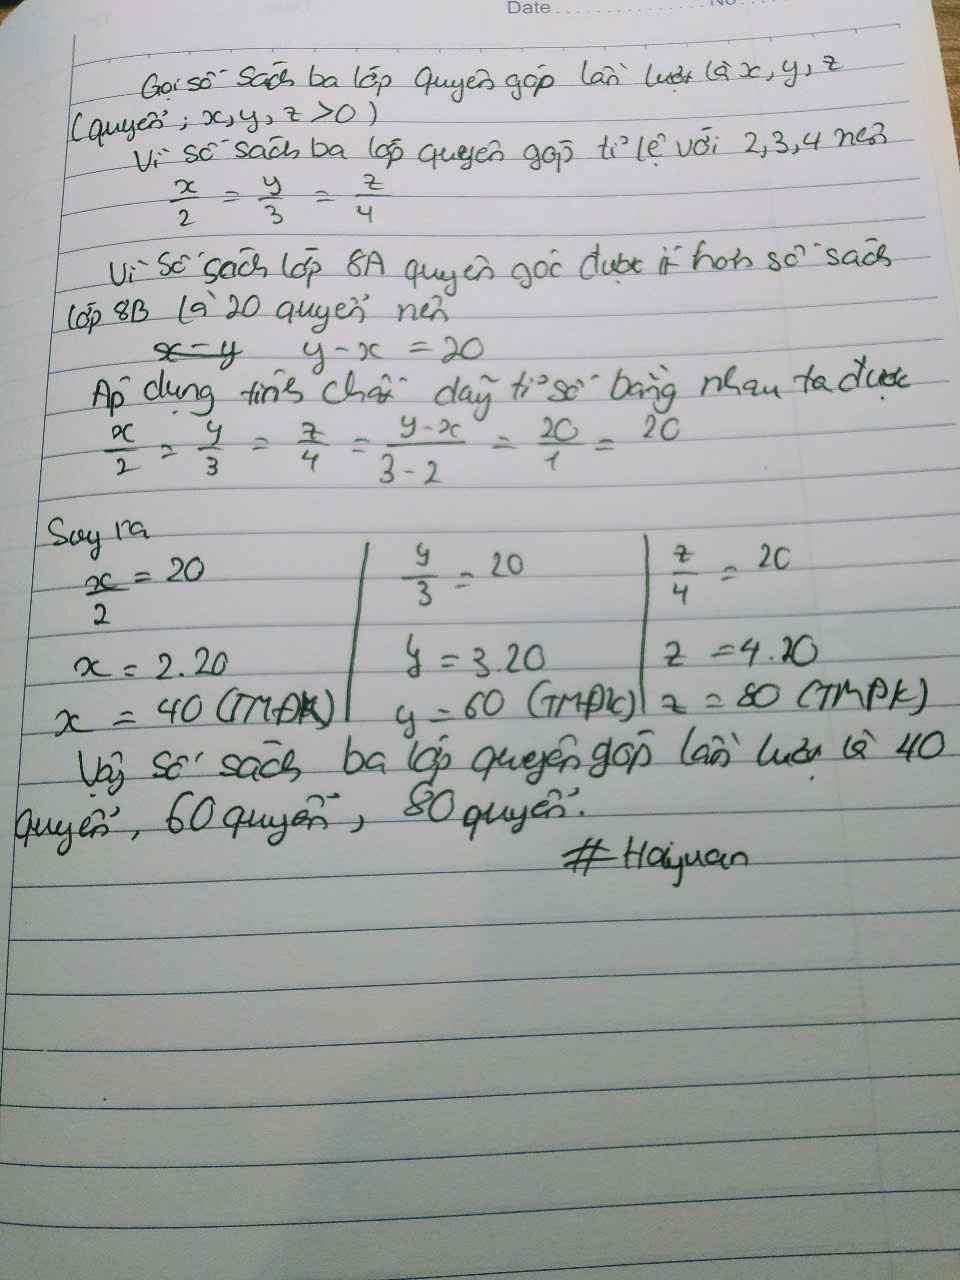 Date No.
Gọi số sách ba lớp quyên góp lần lượt là x, y, z
(quyển; x, y, z > 0)
Vì số sách ba lớp quyên góp tỉ lệ với 2, 3, 4 nên
x/2 = y/3 = z/4
Vì số sách lớp 8A quyên góc được ít hơn số sách
lớp 8B là 20 quyển nên
x - y y - x = 20
Áp dụng tính chất dãy tỉ số bằng nhau ta được
x/2 = y/3 = z/4 = y-x/3-2 = 20/1 = 20
Suy ra
x/2 = 20 | y/3 = 20 | z/4 = 20
x = 2.20 | y = 3.20 | z = 4.20
x = 40 (TMĐK) | y = 60 (TMĐK) | z = 80 (TMĐK)
Vậy số sách ba lớp quyên góp lần lượt là 40
quyển, 60 quyển, 80 quyển.
# Haiyuan